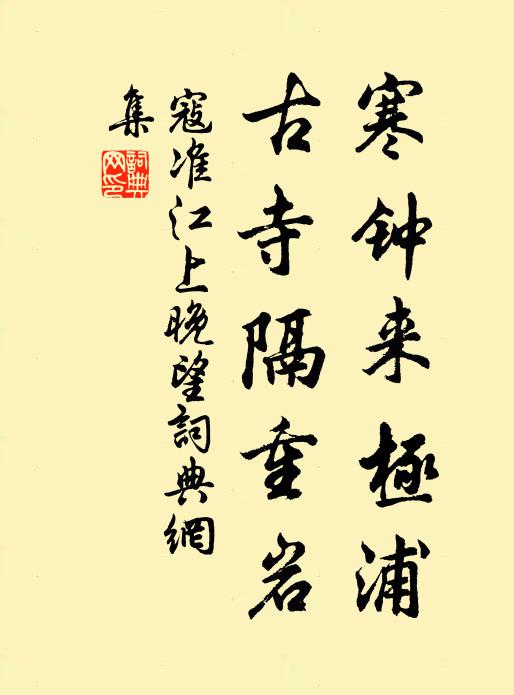 寒钟来極浦
古寺隔重岩
寇准江上晚望詞典網
集
詞典网印